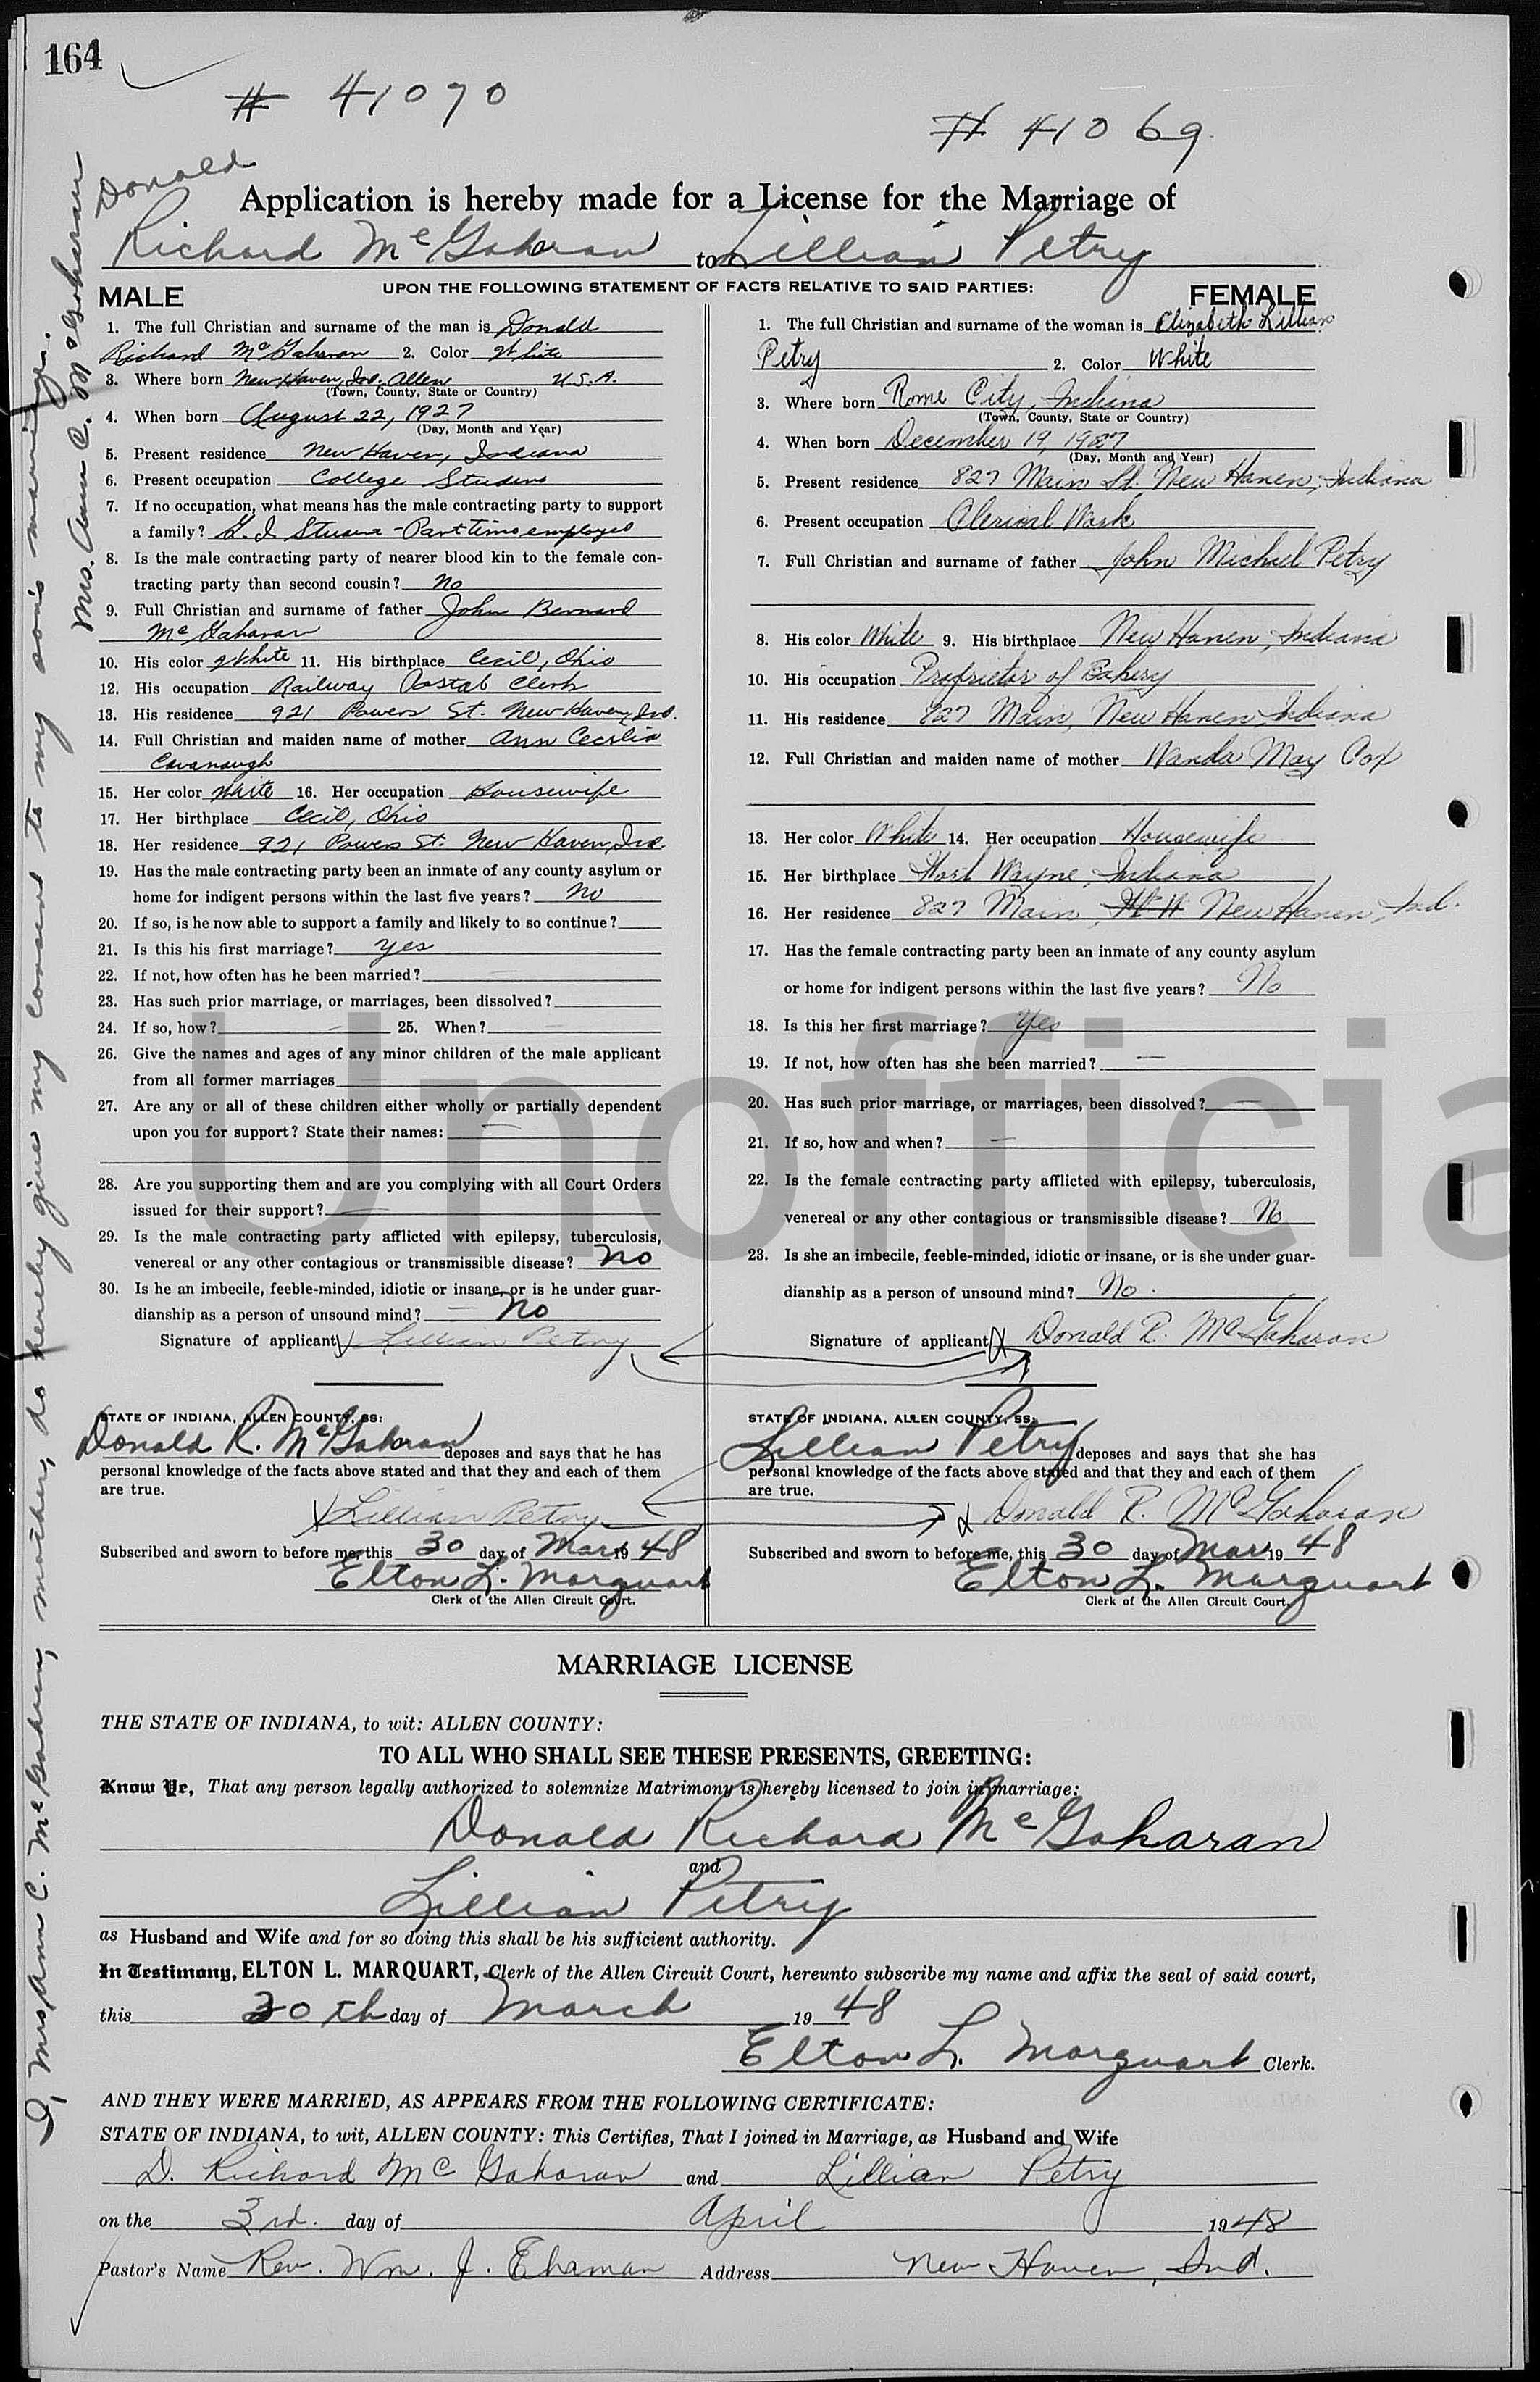 164
# 41090
# 41069
Donald
Application is hereby made for a License for the Marriage of
Richard McGaharan to Lillian Petry
UPON THE FOLLOWING STATEMENT OF FACTS RELATIVE TO SAID PARTIES:
MALE
1. The full Christian and surname of the man is Donald
Richard McGaharan 2. Color White
3. Where born New Haven, Ind. Allen U.S.A.
(Town, County, State or Country)
4. When born August 22, 1927
(Day, Month and Year)
5. Present residence New Haven, Indiana
6. Present occupation College Student
7. If no occupation, what means has the male contracting party to support
a family? G.I. - Part time employed
8. Is the male contracting party of nearer blood kin to the female con-
tracting party than second cousin? No
9. Full Christian and surname of father John Bernard
McGaharan
10. His color White 11. His birthplace Cecil, Ohio
12. His occupation Railway Postal Clerk
13. His residence 921 Powers St. New Haven, Ind.
14. Full Christian and maiden name of mother Ann Cecilia
Cavanaugh
15. Her color White 16. Her occupation Housewife
17. Her birthplace Cecil, Ohio
18. Her residence 921 Powers St. New Haven, Ind.
19. Has the male contracting party been an inmate of any county asylum or
home for indigent persons within the last five years? No
20. If so, is he now able to support a family and likely to so continue?
21. Is this his first marriage? yes
22. If not, how often has he been married?
23. Has such prior marriage, or marriages, been dissolved?
24. If so, how? — 25. When? —
26. Give the names and ages of any minor children of the male applicant
from all former marriages —
27. Are any or all of these children either wholly or partially dependent
upon you for support? State their names: —
28. Are you supporting them and are you complying with all Court Orders
issued for their support? —
29. Is the male contracting party afflicted with epilepsy, tuberculosis,
venereal or any other contagious or transmissible disease? No
30. Is he an imbecile, feeble-minded, idiotic or insane, or is he under guar-
dianship as a person of unsound mind? — No
Signature of applicant x Lillian Petry
STATE OF INDIANA, ALLEN COUNTY, SS:
Donald R. McGaharan deposes and says that he has
personal knowledge of the facts above stated and that they and each of them
are true.
x Lillian Petry
Subscribed and sworn to before me, this 30 day of Mar 19 48
Elton L. Marquart
Clerk of the Allen Circuit Court.
FEMALE
1. The full Christian and surname of the woman is Elizabeth Lillian
Petry 2. Color White
3. Where born Rome City, Indiana
(Town, County, State or Country)
4. When born December 19, 1927
(Day, Month and Year)
5. Present residence 827 Main St. New Haven, Indiana
6. Present occupation Clerical Work
7. Full Christian and surname of father John Michael Petry
8. His color White 9. His birthplace New Haven, Indiana
10. His occupation Proprietor of Bakery
11. His residence 827 Main, New Haven, Indiana
12. Full Christian and maiden name of mother Wanda May Cox
13. Her color White 14. Her occupation Housewife
15. Her birthplace Fort Wayne, Indiana
16. Her residence 827 Main, New Haven, Ind.
17. Has the female contracting party been an inmate of any county asylum
or home for indigent persons within the last five years? No
18. Is this her first marriage? Yes
19. If not, how often has she been married? —
20. Has such prior marriage, or marriages, been dissolved? —
21. If so, how and when? —
22. Is the female contracting party afflicted with epilepsy, tuberculosis,
venereal or any other contagious or transmissible disease? No
23. Is she an imbecile, feeble-minded, idiotic or insane, or is she under guar-
dianship as a person of unsound mind? No.
Signature of applicant x Donald R. McGaharan
STATE OF INDIANA, ALLEN COUNTY, SS:
Lillian Petry deposes and says that she has
personal knowledge of the facts above stated and that they and each of them
are true.
x Donald R. McGaharan
Subscribed and sworn to before me, this 30 day of Mar 19 48
Elton L. Marquart
Clerk of the Allen Circuit Court.
MARRIAGE LICENSE
THE STATE OF INDIANA, to wit: ALLEN COUNTY:
TO ALL WHO SHALL SEE THESE PRESENTS, GREETING:
Know Ye, That any person legally authorized to solemnize Matrimony is hereby licensed to join in marriage:
Donald Richard McGaharan
and
Lillian Petry
as Husband and Wife and for so doing this shall be his sufficient authority.
In Testimony, ELTON L. MARQUART, Clerk of the Allen Circuit Court, hereunto subscribe my name and affix the seal of said court,
this 30th day of March 19 48
Elton L. Marquart Clerk.
AND THEY WERE MARRIED, AS APPEARS FROM THE FOLLOWING CERTIFICATE:
STATE OF INDIANA, to wit, ALLEN COUNTY: This Certifies, That I joined in Marriage, as Husband and Wife
D. Richard McGaharan and Lillian Petry
on the 3rd. day of April 1948
Pastor's Name Rev. Wm. J. Ehrman Address New Haven, Ind.
I, Mrs Ann C. McGaharan, mother, do hereby give my consent to my son's marriage.
Mrs. Ann C. McGaharan
Unofficia